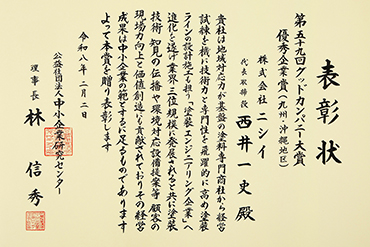 表彰状
第五十九回グッドカンパニー大賞
優秀企業賞(九州・沖縄地区)
株式会社 ニシイ
代表取締役 西井一史殿
貴社は地域対応力が基盤の塗料専門商社から経営
試練を機に技術力と専門性を飛躍的に高め塗装
ラインの設計施工も担う「塗装エンジニアリング企業」へ
進化を遂げ業界三位規模に発展されると共に塗装
技術・知見の伝播や環境対応設備提案等顧客の
現場力向上と価値創造にも貢献されておりその経営
成果は中小企業の範とするに足るものであります
よって本賞を贈り表彰します
令和八年二月二日
公益社団法人中小企業研究センター
理事長 林信秀